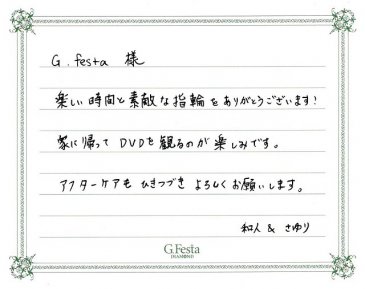 G.festa 様
楽しい時間と素敵な指輪をありがとうございます!
家に帰ってDVDを観るのが楽しみです。
アフターケアもひきつづきよろしくお願いします。
和人 & さゆり
G.Festa
DIAMOND